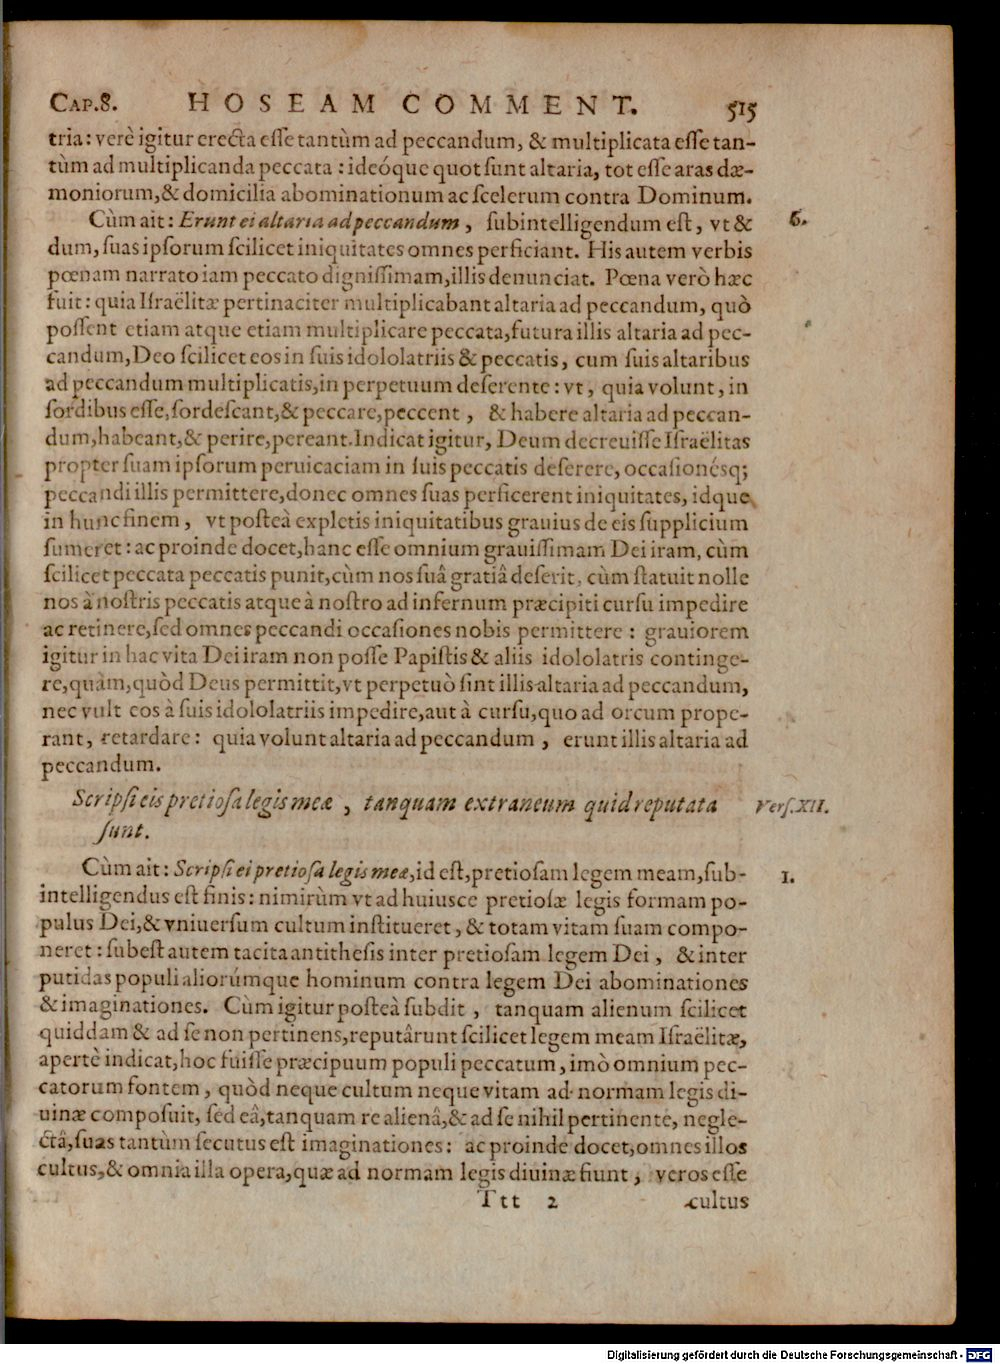 CAP.8. HOSEAM COMMENT. 515
tria: verè igitur erecta esse tantùm ad peccandum, & multiplicata esse tan-
tùm ad multiplicanda peccata: ideóque quot sunt altaria, tot esse aras dæ-
moniorum, & domicilia abominationum ac scelerum contra Dominum.
Cùm ait: Erunt ei altaria ad peccandum, subintelligendum est, vt & 6.
dum, suas ipsorum scilicet iniquitates omnes perficiant. His autem verbis
pœnam narrato iam peccato dignissimam, illis denunciat. Pœna verò hæc
fuit: quia Israëlitæ pertinaciter multiplicabant altaria ad peccandum, quò
possent etiam atque etiam multiplicare peccata, futura illis altaria ad pec-
candum, Deo scilicet eos in suis idololatriis & peccatis, cum suis altaribus
ad peccandum multiplicatis, in perpetuum deserente: vt, quia volunt, in
sordibus esse, sordescant, & peccare, peccent, & habere altaria ad peccan-
dum, habeant, & perire, pereant. Indicat igitur, Deum decreuisse Israëlitas
propter suam ipsorum peruicaciam in suis peccatis deserere, occasionésq;
peccandi illis permittere, donec omnes suas perficerent iniquitates, idque
in hunc finem, vt posteà expletis iniquitatibus grauius de eis supplicium
sumeret: ac proinde docet, hanc esse omnium grauissimam Dei iram, cùm
scilicet peccata peccatis punit, cùm nos suâ gratiâ deserit, cùm statuit nolle
nos à nostris peccatis atque à nostro ad infernum præcipiti cursu impedire
ac retinere, sed omnes peccandi occasiones nobis permittere: grauiorem
igitur in hac vita Dei iram non posse Papistis & aliis idololatris continge-
re, quàm, quòd Deus permittit, vt perpetuò sint illis altaria ad peccandum,
nec vult eos à suis idololatriis impedire, aut à cursu, quo ad orcum prope-
rant, retardare: quia volunt altaria ad peccandum, erunt illis altaria ad
peccandum.
Scripsi eis pretiosa legis meæ, tanquam extraneum quid reputata Vers.XII.
sunt.
Cùm ait: Scripsi ei pretiosa legis meæ, id est, pretiosam legem meam, sub- 1.
intelligendus est finis: nimirùm vt ad huiusce pretiosæ legis formam po-
pulus Dei, & vniuersum cultum institueret, & totam vitam suam compo-
neret: subest autem tacita antithesis inter pretiosam legem Dei, & inter
putidas populi aliorúmque hominum contra legem Dei abominationes
& imaginationes. Cùm igitur posteà subdit, tanquam alienum scilicet
quiddam & ad se non pertinens, reputârunt scilicet legem meam Israëlitæ,
apertè indicat, hoc fuisse præcipuum populi peccatum, imò omnium pec-
catorum fontem, quòd neque cultum neque vitam ad normam legis di-
uinæ composuit, sed eâ, tanquam re alienâ, & ad se nihil pertinente, negle-
ctâ, suas tantùm secutus est imaginationes: ac proinde docet, omnes illos
cultus, & omnia illa opera, quæ ad normam legis diuinæ fiunt, veros esse
Ttt 2 cultus
Digitalisierung gefördert durch die Deutsche Forschungsgemeinschaft - DFG